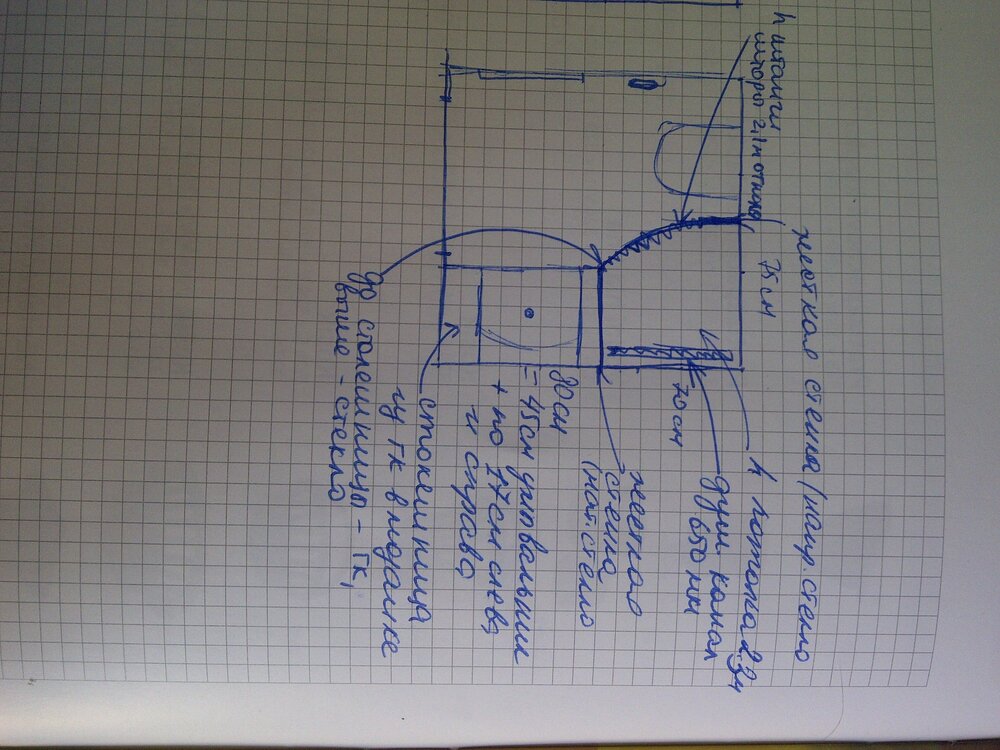 h штанги
шторы 2,1м от пола
75 см
жесткая стенка/напр. стекло
h потолка 2.34
душ. канал
650 мм
70 см
жесткая
стенка
(мат. стекло
80 см
= 45 см умывальник
+ по 17 см слева
и справа
столешница
из ГК в мозаике
до столешницы - ГК,
выше - стекло